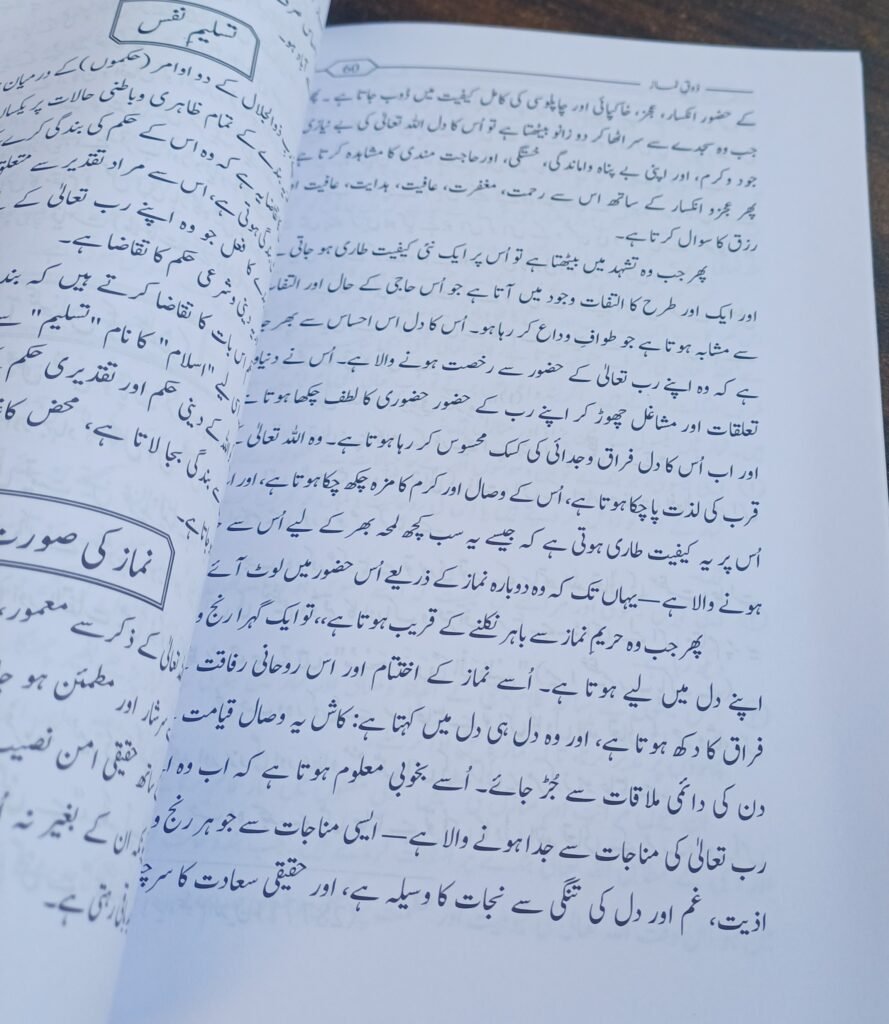 ذوقِ نماز
60
کے حضور انکسار، عجز، خاکپائی اور چاپلوسی کی کامل کیفیت میں ڈوب جاتا ہے۔
جب وہ سجدے سے سر اٹھا کر دو زانو بیٹھتا ہے تو اُس کا دل اللہ تعالیٰ کی بے نیازی
جود و کرم، اور اپنی بے پناہ واماندگی، خستگی، اور حاجت مندی کا مشاہدہ کرتا ہے
پھر عجز و انکسار کے ساتھ اس سے رحمت، مغفرت، عافیت، ہدایت، عافیت
رزق کا سوال کرتا ہے۔
پھر جب وہ تشہد میں بیٹھتا ہے تو اُس پر ایک نئی کیفیت طاری ہو جاتی
اور ایک اور طرح کا التفات وجود میں آتا ہے جو اُس حاجی کے حال اور
سے مشابہ ہوتا ہے جو طوافِ وداع کر رہا ہو۔ اُس کا دل اس احساس سے بھر
ہے کہ وہ اپنے رب تعالیٰ کے حضور سے رخصت ہونے والا ہے۔ اُس نے
تعلقات اور مشاغل چھوڑ کر اپنے رب کے حضور حضوری کا لطف چکھا ہوتا
اور اب اُس کا دل فراق وجدائی کی کسک محسوس کر رہا ہوتا ہے۔ وہ اللہ تعالیٰ
قرب کی لذت پا چکا ہوتا ہے، اُس کے وصال اور کرم کا مزہ چکھ چکا ہوتا ہے، اور
اُس پر یہ کیفیت طاری ہوتی ہے کہ جیسے یہ سب کچھ لمحہ بھر کے لیے اُس سے
ہونے والا ہے — یہاں تک کہ وہ دوبارہ نماز کے ذریعے اُس حضور میں لوٹ آئے
پھر جب وہ حریمِ نماز سے باہر نکلنے کے قریب ہوتا ہے،، تو ایک گہرا رنج و
اپنے دل میں لیے ہوتا ہے۔ اُسے نماز کے اختتام اور اس روحانی رفاقت
فراق کا دکھ ہوتا ہے، اور وہ دل ہی دل میں کہتا ہے: کاش یہ وصال قیامت
دن کی دائمی ملاقات سے جُڑ جائے۔ اُسے بخوبی معلوم ہوتا ہے کہ اب وہ
رب تعالیٰ کی مناجات سے جدا ہونے والا ہے — ایسی مناجات سے جو ہر رنج و
اذیت، غم اور دل کی تنگی سے نجات کا وسیلہ ہے، اور حقیقی سعادت کا
تسلیمِ نفس
ذوالجلال کے دو اوامر (حکموں) کے درمیان
کے تمام ظاہری و باطنی حالات پر یکساں
یہ ہے کہ وہ اس کے حکم کی بندگی کرے
ہوتی ہے، اس سے مراد تقدیر سے
کا فعل جو وہ اپنے رب تعالیٰ کے
دینی و شرعی حکم کا تقاضا ہے۔
اس بات کا تقاضا کرتے ہیں کہ
لیے "اسلام" کا نام "تسلیم"
کے دینی حکم اور تقدیری حکم
بندگی بجا لاتا ہے، محض
نماز کی صورت
تعالیٰ کے ذکر سے معمور،
سرشار اور مطمئن ہو
حقیقی امن نصیب
ان کے بغیر نہ
رہتی ہے۔